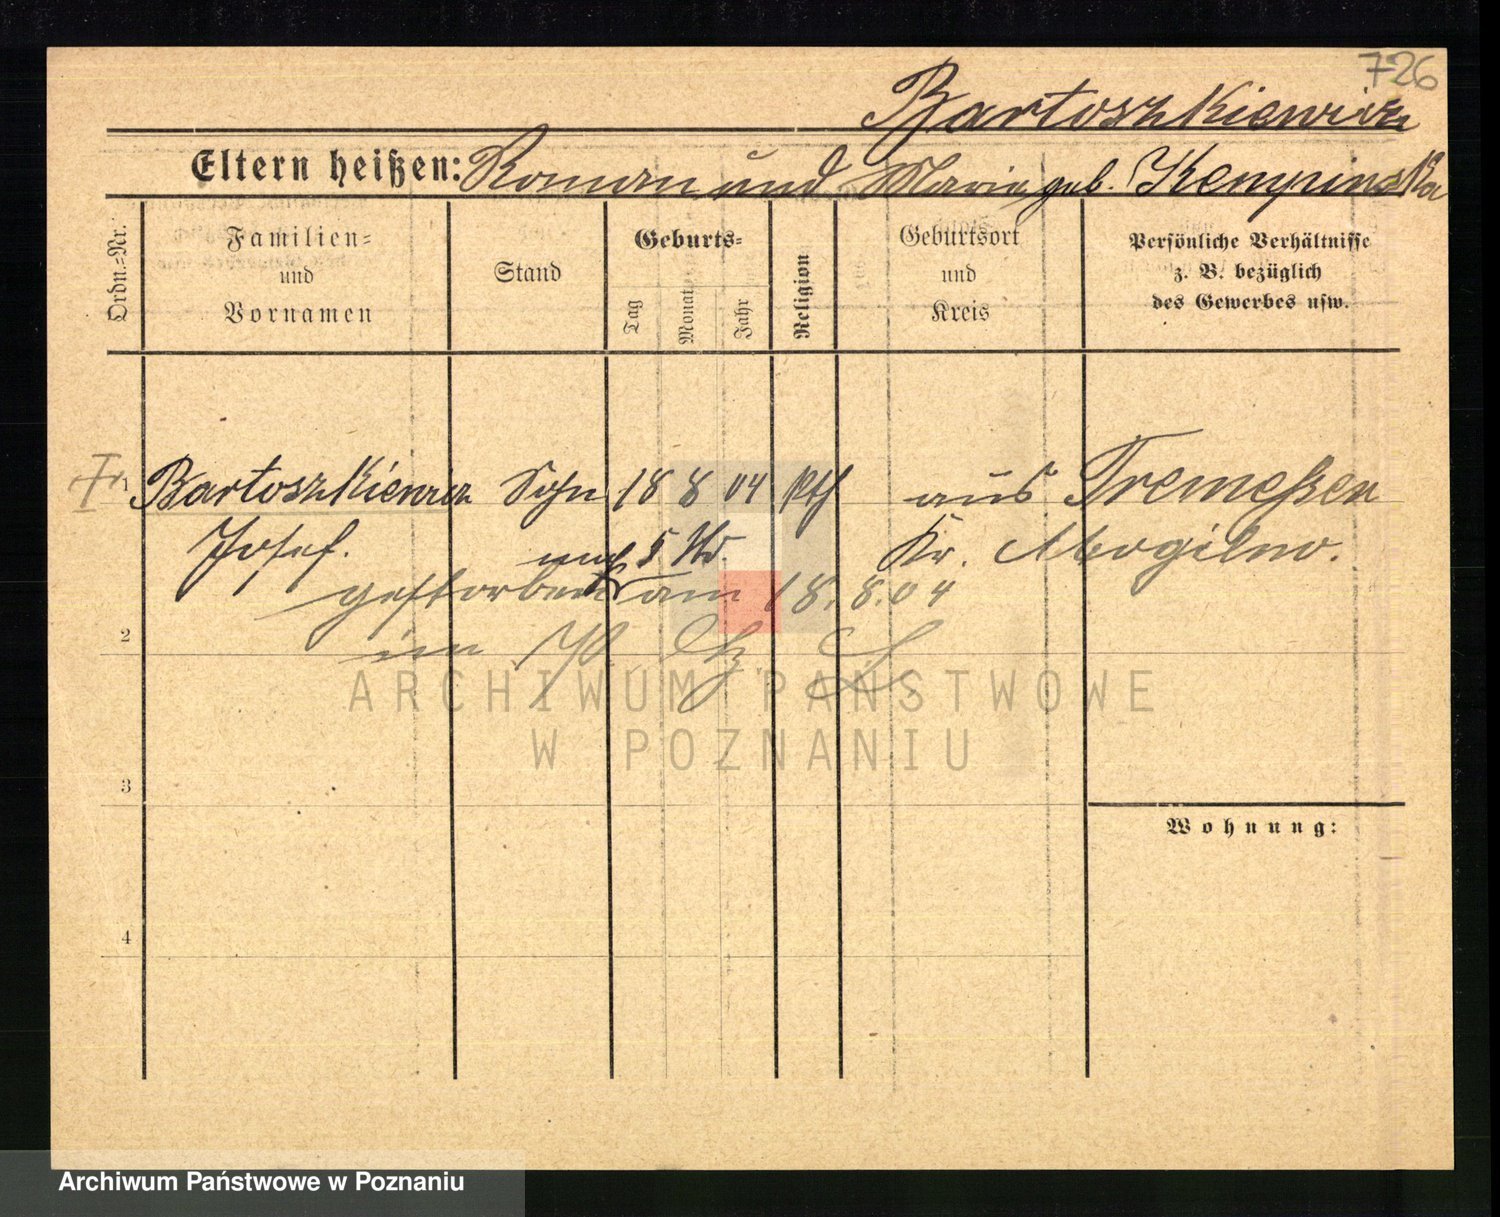 726
Bartoszkiewicz
Eltern heißen: Roman und Maria geb. Kempinska
Ordn.-Nr.
Familien-
und
Vornamen
Stand
Geburts-
Tag
Monat
Jahr
Religion
Geburtsort
und
Kreis
Persönliche Verhältnisse
z. B. bezüglich
des Gewerbes usw.
1 Bartoszkiewicz Sohn 18 8 04 kth aus Tremessen
Josef. 5 Kr. Mogilno.
gestorben am 18.8.04
2 im
ARCHIWUM PAŃSTWOWE
W POZNANIU
3
Wohnung:
4
Archiwum Państwowe w Poznaniu